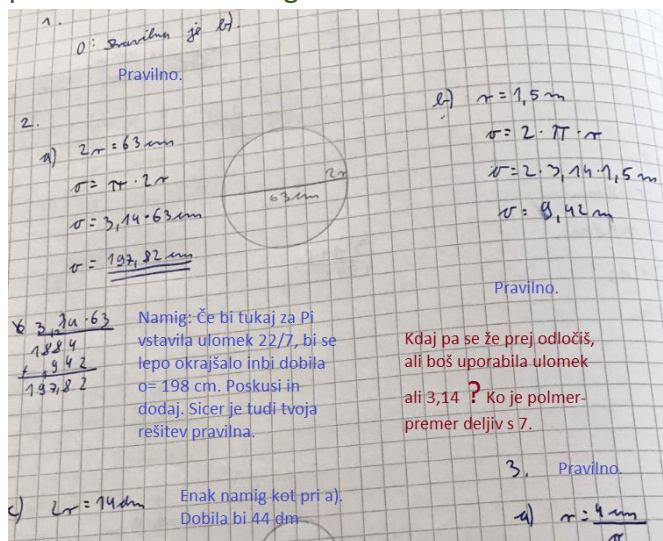 1.
O: Pravilna je b).
Pravilno.
2.
a) 2r = 63 cm
o = π · 2r
o = 3,14 · 63 cm
o = 197,82 cm
2r
63 cm
3,14 · 63
1884
+ 942
197,82
b) r = 1,5 m
o = 2 · π · r
o = 2 · 3,14 · 1,5 m
o = 9,42 m
Pravilno.
Namig: Če bi tukaj za Pi
vstavila ulomek 22/7, bi se
lepo okrajšalo inbi dobila
o= 198 cm. Poskusi in
dodaj. Sicer je tudi tvoja
rešitev pravilna.
Kdaj pa se že prej odločiš,
ali boš uporabila ulomek
ali 3,14 ? Ko je polmer-
premer deljiv s 7.
c) 2r = 14 dm
Enak namig kot pri a).
Dobila bi 44 dm
3. Pravilno.
a) r = 4 cm